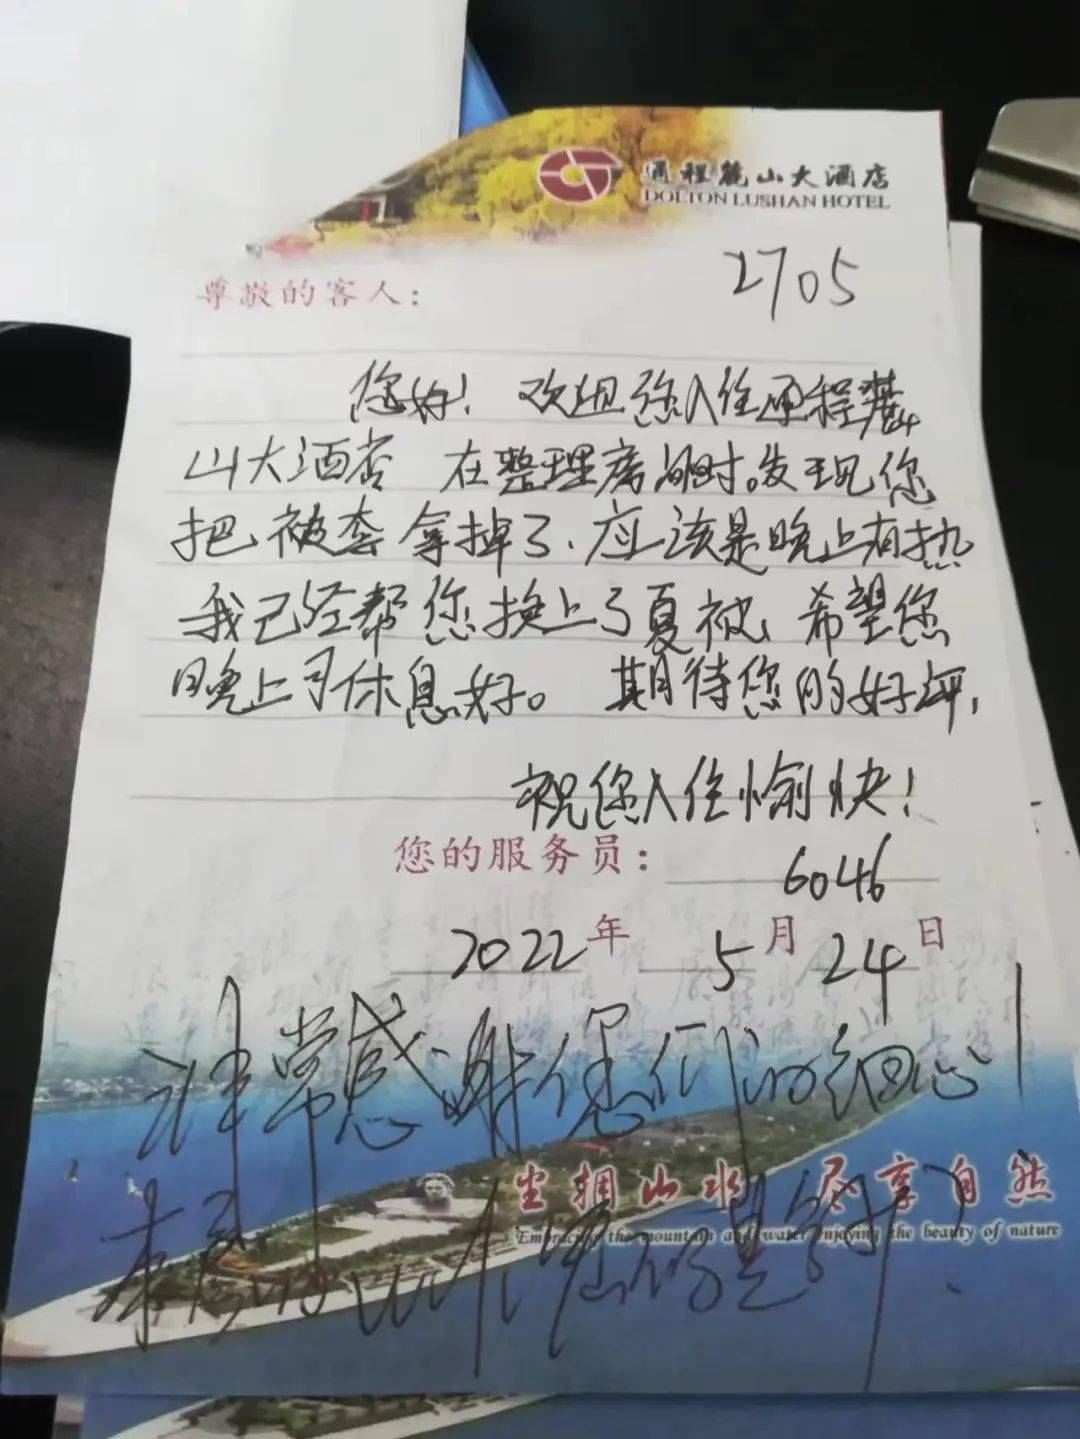 通程麓山大酒店
DOLTON LUSHAN HOTEL
2705
尊敬的客人:
您好! 欢迎您入住通程麓
山大酒店 在整理房间时。发现您
把被套拿掉了、应该是晚上有热
我已经帮您换上了夏被、希望您
晚上可休息好。 期待您的好评,
祝您入住愉快!
您的服务员: 6046
2022年5月24日
非常感谢您们的细心!
坐拥山水 尽享自然
Embracing the mountain and water enjoying the beauty of nature